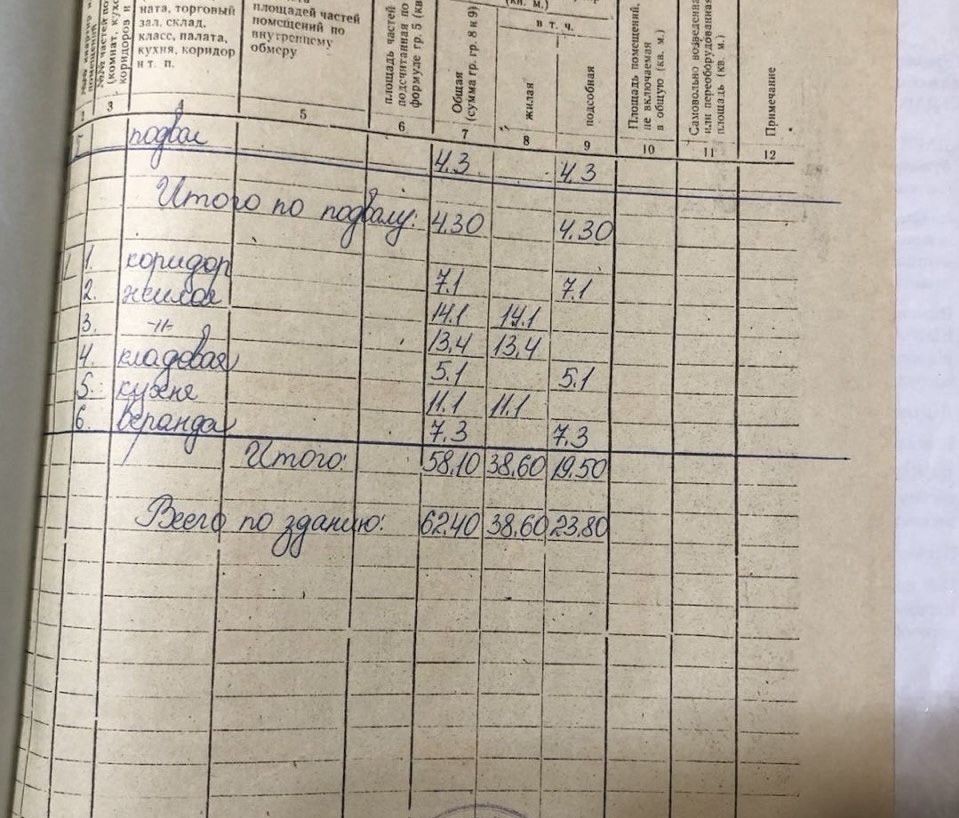 ната, торговый
зал, склад,
класс, палата,
кухня, коридор
и т. п.
площадей частей
помещений по
внутреннему
обмеру
площадь частей
подсчитанная по
формуле гр. 5 (кв
(кв. м.)
Общая
(сумма гр. гр. 8 и 9)
в т. ч.
жилая
подсобная
Площадь помещений,
не включаемая
в общую (кв. м.)
Самовольно возведенная
или переоборудованная
площадь (кв. м.)
Примечание
3 5 6 7 8 9 10 11 12
подвал 4.3 4.3
Итого по подвалу: 4.30 4.30
1. коридор 7.1 7.1
2. жилая 14.1 14.1
3. -"- 13,4 13,4
4. кладовая 5.1 5.1
5. кухня 11.1 11.1
6. веранда 7.3 7.3
Итого: 58.10 38.60 19.50
Всего по зданию: 62.40 38.60 23.80